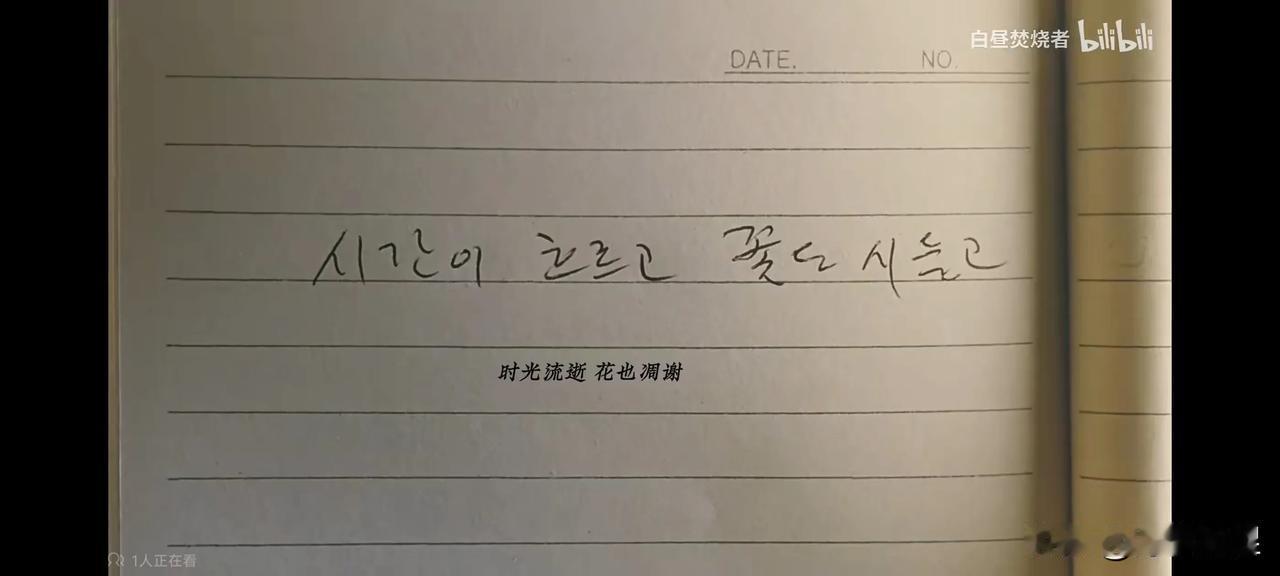 白昼焚烧者 bilibili
DATE. NO.
시간이 흐르고 꽃도 시들고
时光流逝 花也凋谢
1人正在看